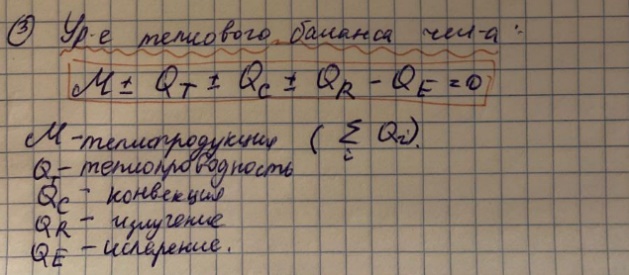 ③ Ур-е теплового баланса чел-а:
M ± Q_T ± Q_C ± Q_R - Q_E = 0
M - теплопродукция (∑_i Q_i).
Q_T - теплопроводность
Q_C - конвекция
Q_R - излучение
Q_E - испарение.